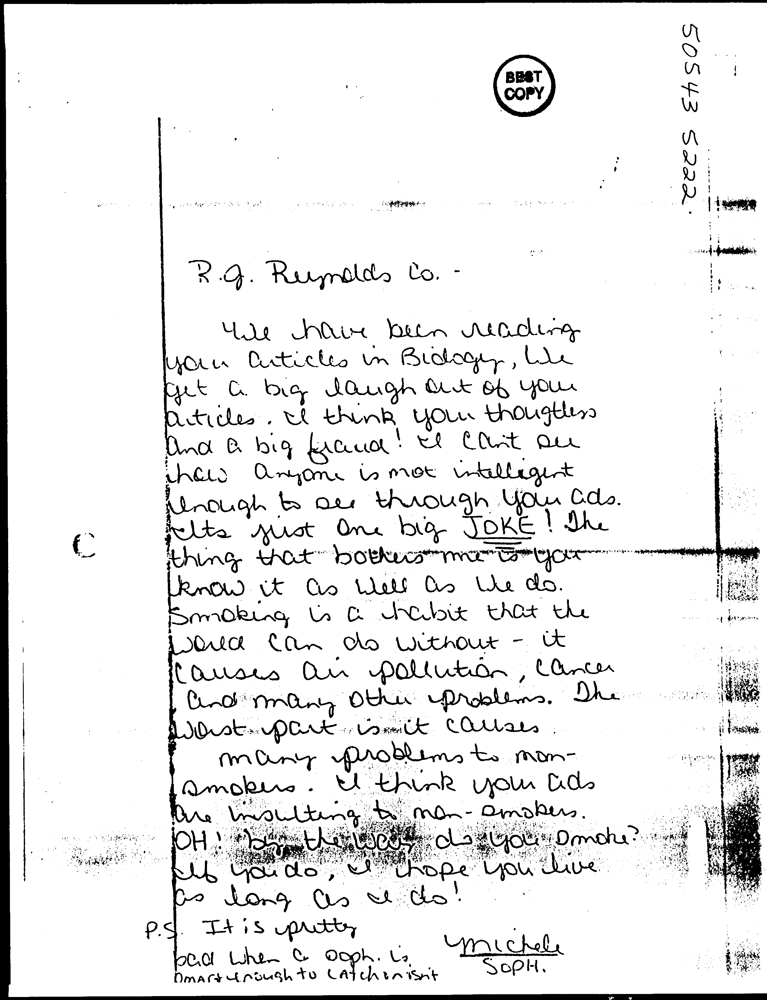 BEST
COPY
50543 5222
R.J. Reynolds Co. -
We have been reading
your articles in Biology, We
get a big laugh out of your
articles. I think your thoughtless
and a big fraud! I can't see
how anyone is not intelligent
enough to see through your ads.
Its just one big JOKE! The
thing that bothers me is you
know it as well as we do.
Smoking is a habit that the
world can do without - it
causes air pollution, cancer
and many other problems. The
worst part is it causes
many problems to non-
smokers. I think your ads
are insulting to non-smokers.
OH! by the way do you smoke?
If you do, I hope you live
as long as I do!
P.S. It is pretty
bad when a soph. is
smart enough to catch on isn't
Michele
SOPH.